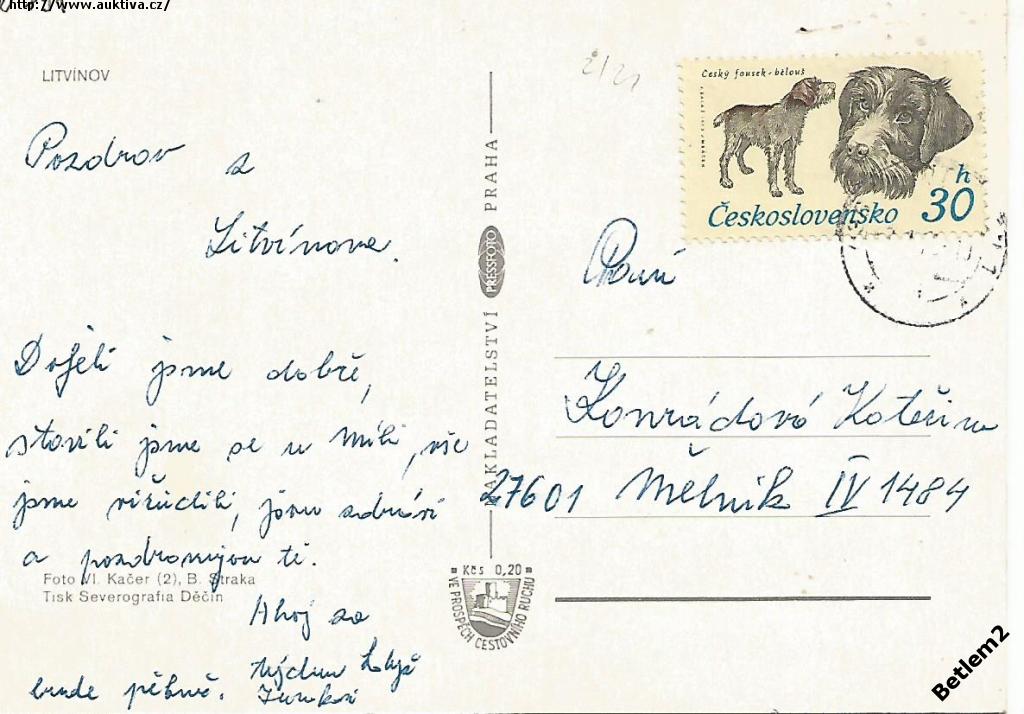 http://www.auktiva.cz/
LITVÍNOV
Pozdrav z
Litvínova.
Dojeli jsme dobře,
stavili jsme se u Míli, vše
jsme vyřídili, jsou zdrávi
a pozdravujou tě.
Foto Vl. Kačer (2), B. Straka
Tisk Severografia Děčín
Ahoj za
týden
bude pěkně.
NAKLADATELSTVÍ PRESSFOTO PRAHA
Kčs 0,20
VE PROSPĚCH CESTOVNÍHO RUCHU
2/21
Český fousek - bělouš
Československo 30 h
Paní
Konrádová Kateřina
27601 Mělník IV 1484
Betlem2